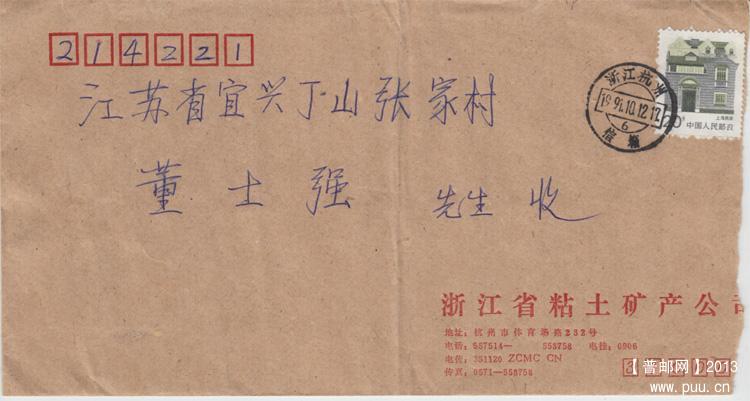 214221
江苏省宜兴丁山张家村
董士强 先生 收
浙江杭州
1991.10.12.12
6
20
上海民居
中国人民邮政
浙江省粘土矿产公司
地址：杭州市体育场路232号
电话：557514— 553758 电挂：0906
电传：351120 ZCMC CN
传真：0571—553758
【普邮网】2013
www.puu.cn